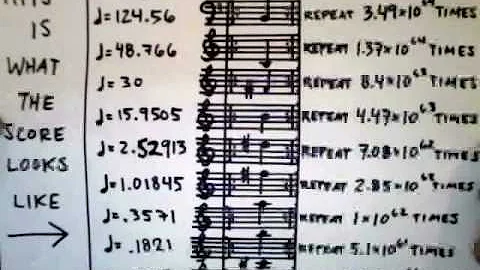 THIS
IS
WHAT
THE
SCORE
LOOKS
LIKE
♩=124.56 REPEAT 3.49×10⁶⁴ TIMES
♩=48.766 REPEAT 1.37×10⁶⁴ TIMES
♩=30 REPEAT 8.4×10⁶³ TIMES
♩=15.9505 REPEAT 4.47×10⁶³ TIMES
♩=2.52913 REPEAT 7.08×10⁶² TIMES
♩=1.01845 REPEAT 2.85×10⁶² TIMES
♩=.3571 REPEAT 1×10⁶² TIMES
♩=.1821 REPEAT 5.1×10⁶¹ TIMES